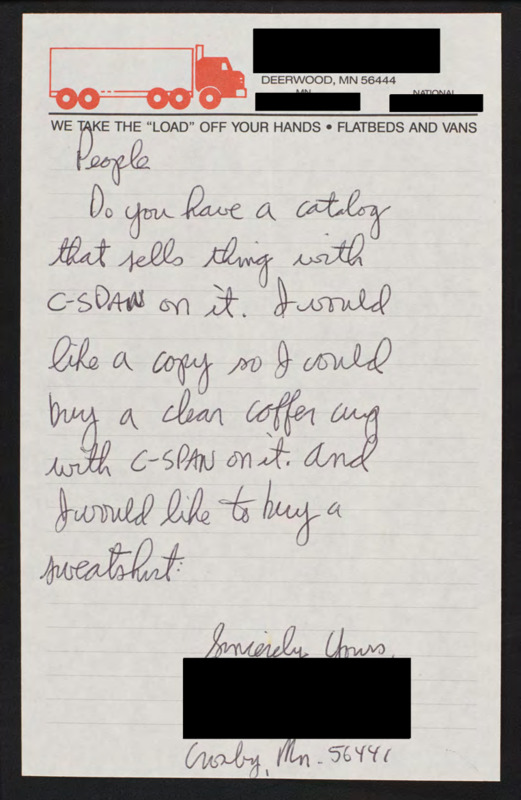 DEERWOOD, MN 56444
MN
NATIONAL
WE TAKE THE "LOAD" OFF YOUR HANDS • FLATBEDS AND VANS
People
Do you have a catalog
that sells thing with
C-SPAN on it. I would
like a copy so I could
buy a clear coffer cug
with C-SPAN on it. And
I would like to buy a
sweatshirt.
Sincerely Yours,
Crosby, Mn - 56441